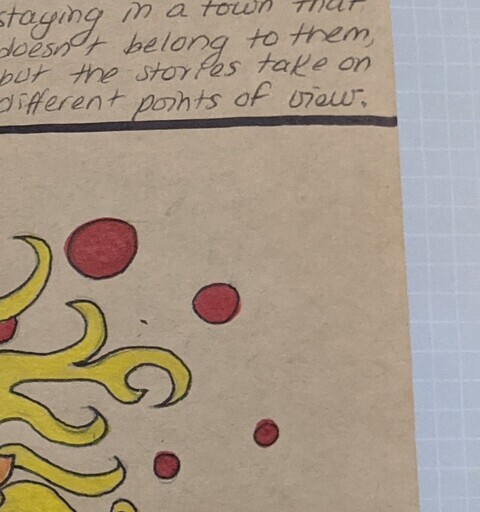 staying in a town that
doesn't belong to them,
but the stories take on
different points of view.